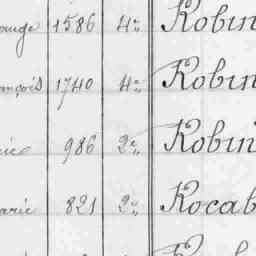 ouge 1586 4e Robin
ançois 1740 4e Robin
rie 986 2e Robin
arie 821 2e Rocab